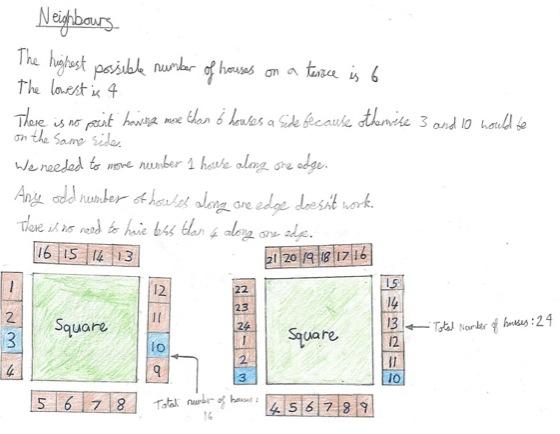 Neighbours
The highest possible number of houses on a terrace is 6
The lowest is 4
There is no point having more than 6 houses a side because otherwise 3 and 10 would be
on the same side.
We needed to move number 1 house along one edge.
Any odd number of houses along one edge doesn't work.
There is no need to have less than 4 along one edge.
16 15 14 13
1
2
3
4
Square
12
11
10
9
5 6 7 8
Total number of houses:
16
21 20 19 18 17 16
22
23
24
1
2
3
Square
15
14
13
12
11
10
4 5 6 7 8 9
Total number of houses: 24